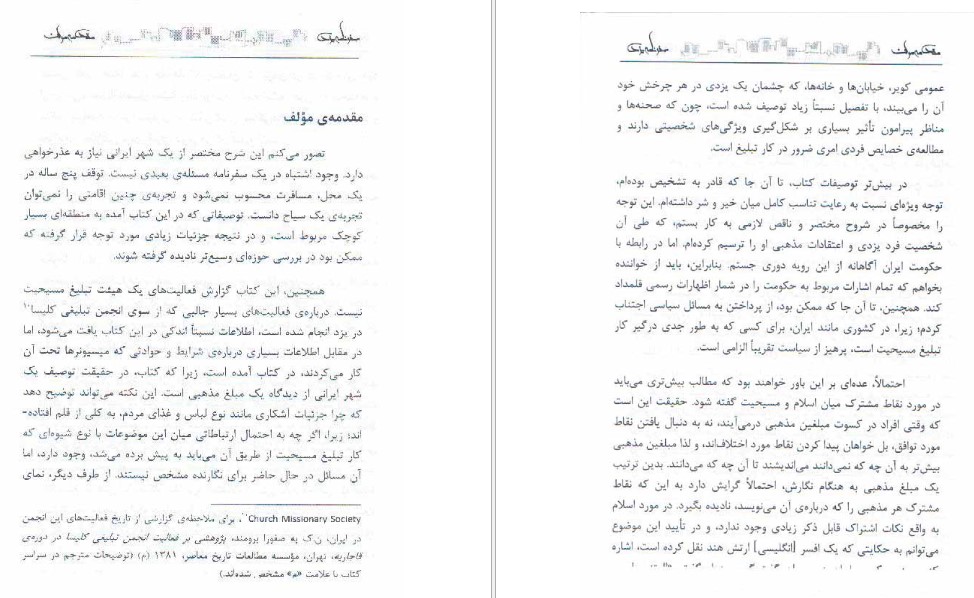 مقدمه‌ی مؤلف
تصور می‌کنم این شرح مختصر از یک شهر ایرانی نیاز به عذرخواهی
دارد. وجود اشتباه در یک سفرنامه مسئله‌ی بعیدی نیست. توقف پنج ساله در
یک محل، مسافرت محسوب نمی‌شود و تجربه‌ی چنین اقامتی را نمی‌توان
تجربه‌ی یک سیاح دانست. توصیفاتی که در این کتاب آمده به منطقه‌ای بسیار
کوچک مربوط است، و در نتیجه جزئیات زیادی مورد توجه قرار گرفته که
ممکن بود در بررسی حوزه‌ای وسیع‌تر نادیده گرفته شوند.
همچنین، این کتاب گزارش فعالیت‌های یک هیئت تبلیغ مسیحیت
نیست. درباره‌ی فعالیت‌های بسیار جالبی که از سوی انجمن تبلیغی کلیسا
در یزد انجام شده است، اطلاعات نسبتاً اندکی در این کتاب یافت می‌شود، اما
در مقابل اطلاعات بسیاری درباره‌ی شرایط و حوادثی که میسیونرها تحت آن
کار می‌کردند، در کتاب آمده است، زیرا که کتاب، در حقیقت توصیف یک
شهر ایرانی از دیدگاه یک مبلغ مذهبی است. این نکته می‌تواند توضیح دهد
که چرا جزئیات آشکاری مانند نوع لباس و غذای مردم، به کلی از قلم افتاده-
اند؛ زیرا، اگر چه به احتمال ارتباطاتی میان این موضوعات با نوع شیوه‌ای که
کار تبلیغ مسیحیت از طریق آن می‌باید به پیش برده می‌شد، وجود دارد، اما
آن مسائل در حال حاضر برای نگارنده مشخص نیستند. از طرف دیگر، نمای
Church Missionary Society، برای ملاحظه‌ی گزارشی از تاریخ فعالیت‌های این انجمن
در ایران، ن.ک به صفورا برومند، پژوهشی بر فعالیت انجمن تبلیغی کلیسا در دوره‌ی
قاجاریه، تهران، مؤسسه مطالعات تاریخ معاصر، ۱۳۸۱ (م) (توضیحات مترجم در سراسر
کتاب با علامت «م» مشخص شده‌اند.)
عمومی کویر، خیابان‌ها و خانه‌ها، که چشمان یک یزدی در هر چرخش خود
آن را می‌بیند، با تفصیل نسبتاً زیاد توصیف شده است، چون که صحنه‌ها و
مناظر پیرامون تأثیر بسیاری بر شکل‌گیری ویژگی‌های شخصیتی دارند و
مطالعه‌ی خصایص فردی امری ضرور در کار تبلیغ است.
در بیش‌تر توصیفات کتاب، تا آن جا که قادر به تشخیص بوده‌ام،
توجه ویژه‌ای نسبت به رعایت تناسب کامل میان خیر و شر داشته‌ام. این توجه
را مخصوصاً در شروح مختصر و ناقص لازمی به کار بستم، که طی آن
شخصیت فرد یزدی و اعتقادات مذهبی او را ترسیم کرده‌ام. اما در رابطه با
حکومت ایران آگاهانه از این رویه دوری جستم. بنابراین، باید از خواننده
بخواهم که تمام اشارات مربوط به حکومت را در شمار اظهارات رسمی قلمداد
کند. همچنین، تا آن جا که ممکن بود، از پرداختن به مسائل سیاسی اجتناب
کردم؛ زیرا، در کشوری مانند ایران، برای کسی که به طور جدی درگیر کار
تبلیغ مسیحیت است، پرهیز از سیاست تقریباً الزامی است.
احتمالاً، عده‌ای بر این باور خواهند بود که مطالب بیش‌تری می‌باید
در مورد نقاط مشترک میان اسلام و مسیحیت گفته شود. حقیقت این است
که وقتی افراد در کسوت مبلغین مذهبی درمی‌آیند، نه به دنبال یافتن نقاط
مورد توافق، بل خواهان پیدا کردن نقاط مورد اختلاف‌اند، و لذا مبلغین مذهبی
بیش‌تر به آن چه که نمی‌دانند می‌اندیشند تا آن چه که می‌دانند. بدین ترتیب
یک مبلغ مذهبی به هنگام نگارش، احتمالاً گرایش دارد به این که نقاط
مشترک هر مذهبی را که درباره‌ی آن می‌نویسد، نادیده بگیرد. در مورد اسلام
به واقع نکات اشتراک قابل ذکر زیادی وجود ندارد، و در تأیید این موضوع
می‌توانم به حکایتی که یک افسر [انگلیسی] ارتش هند نقل کرده است، اشاره